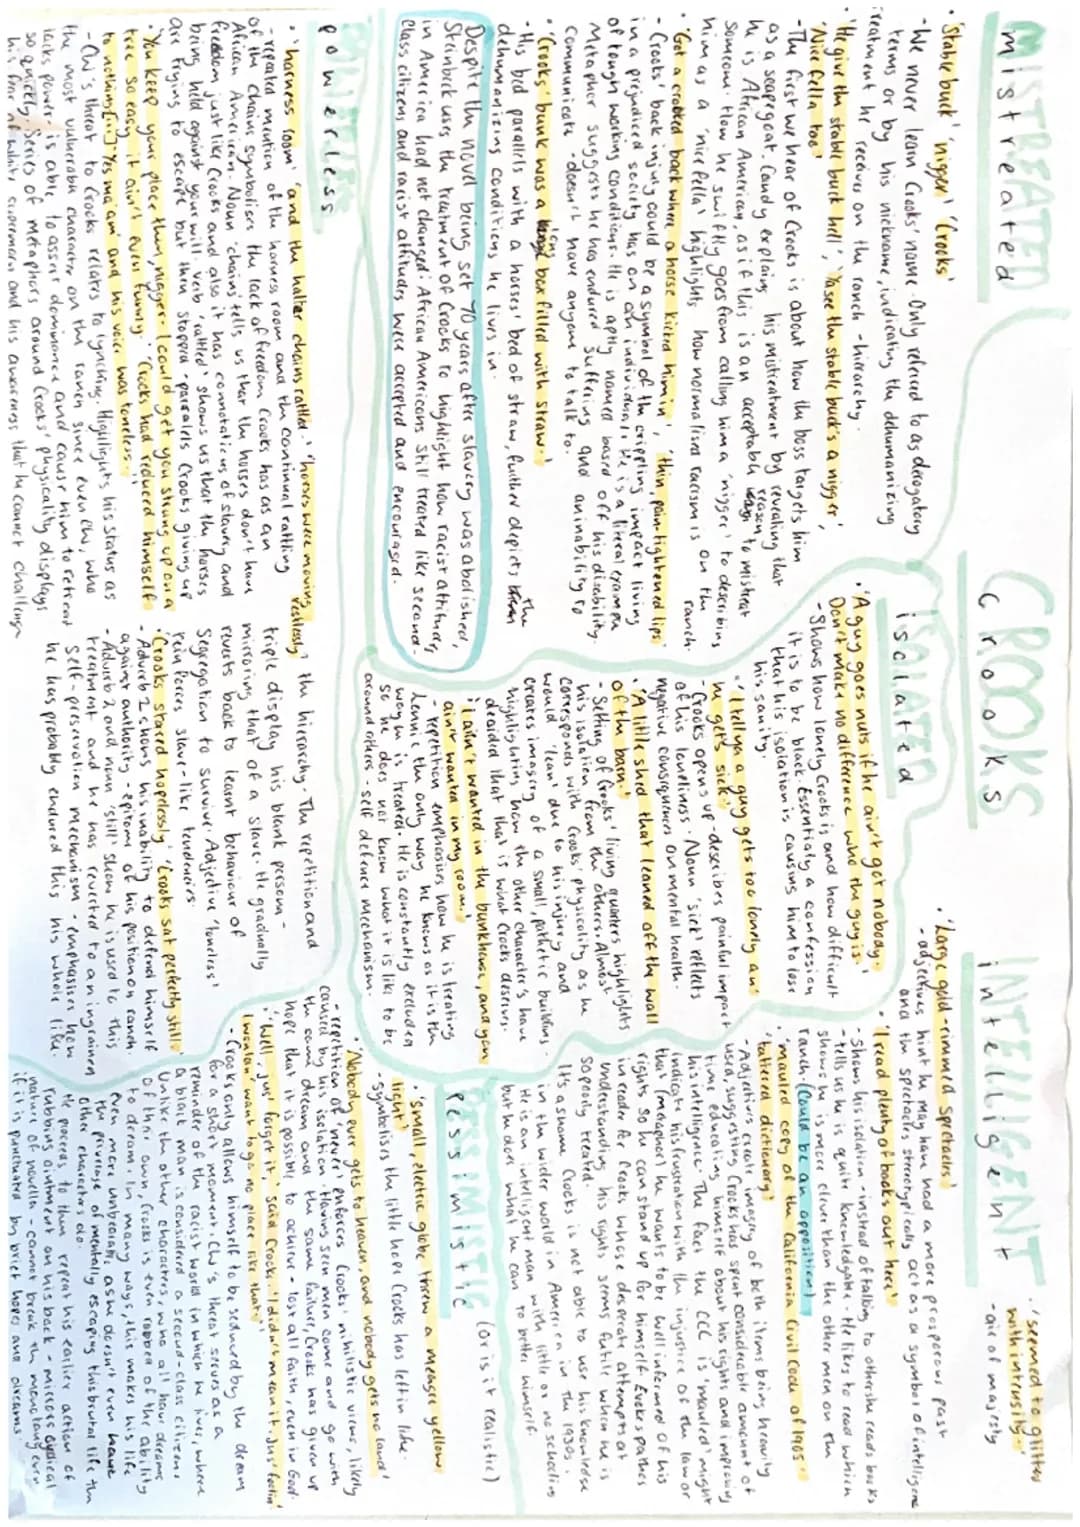 CROOKS
Crooks
MISTREATED
mistreated
• 'Stable buck' 'nigger' 'Crooks'
- We never learn Crooks' name - Only refered to as derogatory
terms or by his nickname, indicating the dehumanizing
treatment he receives on the ranch - hierarchy.
• 'He give the stable buck hell', 'Ya see the stable buck's a nigger',
'Nice fella too'
- The first we hear of Crooks is about how the boss targets him
as a scapegoat. Candy explains his mistreatment by revealing that
he is African American, as if this is an acceptable reason to mistreat
someone. How he swiftly goes from calling him a 'nigger' to describing
him as a 'nice fella' highlights how normalised racism is on the
ranch.
• 'Got a crooked back where a horse kicked him in', 'thin, pain-tightened lips'
- Crooks' back injury could be a symbol of the crippling impact living
in a prejudiced society has on an individual. He is a literal example
of tough working conditions. He is aptly named based off his disability.
Metaphor suggests he has endured suffering and an inability to
communicate - doesn't have anyone to talk to.
• 'Crooks' bunk was a long box filled with straw.'
- His bed parallels with a horses' bed of straw, further depicts the
dehumanizing conditions he lives in.
Despite the novel being set 70 years after slavery was abolished,
Steinbeck uses the treatment of Crooks to highlight how racist attitudes
in America had not changed. African Americans still treated like second-
class citizens and racist attitudes were accepted and encouraged.
POWERLESS
powerless
• 'harness room' 'and the halter chains rattled.' 'horses were moving
restlessly'
- repeated mention of the harness room and the continual rattling
of the chains symbolises the lack of freedom Crooks has as an
African American. Noun 'chains' tells us that the horses don't have
freedom just like Crooks and also it has connotations of slavery and
being held against your will. Verb 'rattled' shows us that the horses
are trying to escape but then stopped - parallels Crooks giving up
• 'You keep your place then, nigger. I could get you strung up on a
tree so easy it ain't even funny.' 'Crooks had reduced himself
to nothing [...] 'Yes ma'am' and his voice was toneless.'
- CW's threat to Crooks relates to lynching. Highlights his status as
the most vulnerable character on the ranch since even CW, who
lacks power is able to assert dominance and cause him to retreat
so quickly. Series of metaphors around Crooks' physicality displays
his fear of white supremacy and his awareness that he cannot challenge
the hierarchy. The repetition and
triple display his blank person -
mirroring that of a slave. He gradually
reverts back to learnt behaviour of
segregation to survive. Adjective 'toneless'
reinforces slave-like tendencies.
• 'Crooks stared hopelessly' 'Crooks sat perfectly still'
- Adverb 1 shows his inability to defend himself
against authority - epitome of his position on ranch.
- Adverb 2 and noun 'still' show he is used to this
treatment and he has reverted to an ingrained
self-preservation mechanism - emphasises how
he has probably endured this his whole life.
ISOLATED
isolated
• 'A guy goes nuts if he ain't got nobody.
Don't make no difference who the guy is'
- Shows how lonely Crooks is and how difficult
it is to be black. Essentialy a confession
that his isolation is causing him to lose
his sanity.
• 'I tell ya a guy gets too lonely an'
he get's sick'
- Crooks opens up - describes painful impact
of his loneliness. Noun 'sick' reflects
negative consequences on mental health.
• 'A little shed that leaned off the wall
of the barn.'
- Setting of Crooks' living quarters highlights
his isolation from the others. Almost
corresponds with Crooks' physicality as he
would 'lean' due to his injury and
creates imagery of a small, pathetic building.
Highlighting how the other character's have
decided that that is what Crooks deserves.
• 'I ain't wanted in the bunkhouse, and you
ain't wanted in my room.'
- repetition emphasises how he is treating
Lennie the only way he knows as it is the
way he is treated. He is constantly excluded
so he does not know what it is like to be
around others - self defence mechanism.
INTELLIGENT
intelligent
• 'seemed to glitter
with intensity.'
- air of majesty
• 'Large gold-rimmed spectacles'
- adjectives hint he may have had a more prosperous past
and the spectacles stereotypically act as a symbol of intelligence
• 'I read plenty of books out here'
- shows his isolation - instead of talking to others he reads books
- tells us he is quite knowledgable. He likes to read which
shows he is more clever than the other men on the
ranch. (Could be an opposition)
• 'mauled copy of the California Civil Code of 1905'
'tattered dictionary'
- Adjectives create imagery of both items being heavily
used, suggesting Crooks has spent considerable amount of
time educating himself about his rights and improving
his intelligence. The fact the CCC is 'mauled' might
indicate his frustration with the injustice of the law or
that (metaphor) he wants to be well informed of his
rights so he can stand up for himself. Evokes pathos
in reader for Crooks whose desperate attempts at
understanding his rights seems futile when he is
so poorly treated.
It's a shame Crooks is not able to use his knowledge
in the wider world in American in the 1930s.
He is an intelligent man with little or no schooling
but he does what he can to better himself.
PESSIMISTIC
pessimistic (or is it realistic)
• 'Small, electric globe threw a meager yellow
light'
- Symbolises the little hope Crooks has left in life.
• 'Nobody ever gets to heaven, and nobody gets no land'
- repetition of 'never' enforces Crooks' nihilistic views, likely
caused by his isolation. Having seen men come and go with
the same dream and the same failure, Crooks has given up
hope that it is possible to achieve - lost all faith, even in God.
• 'Well, jus' forget it,' said Crooks. 'I didn't mean it. Jus' foolin'
I wouldn' want to go no place like that.'
- Crooks only allows himself to be seduced by the dream
for a short moment. CW's threat serves as a
reminder of the racist world in which he lives, where
a black man is considered a second-class citizen.
Unlike the other characters, who all have dreams
of their own, Crooks is even robbed of the ability
to dream. In many ways, this makes his life
even more unbreakable, as he doesn't even have
the privilege of mentally escaping this brutal life the
other characters do.
He proceeds to then repeat his earlier action of
rubbing ointment on his back - mirrors cyclical
nature of novella - cannot break the monotony even
if it is punctuated by brief hopes and dreams.